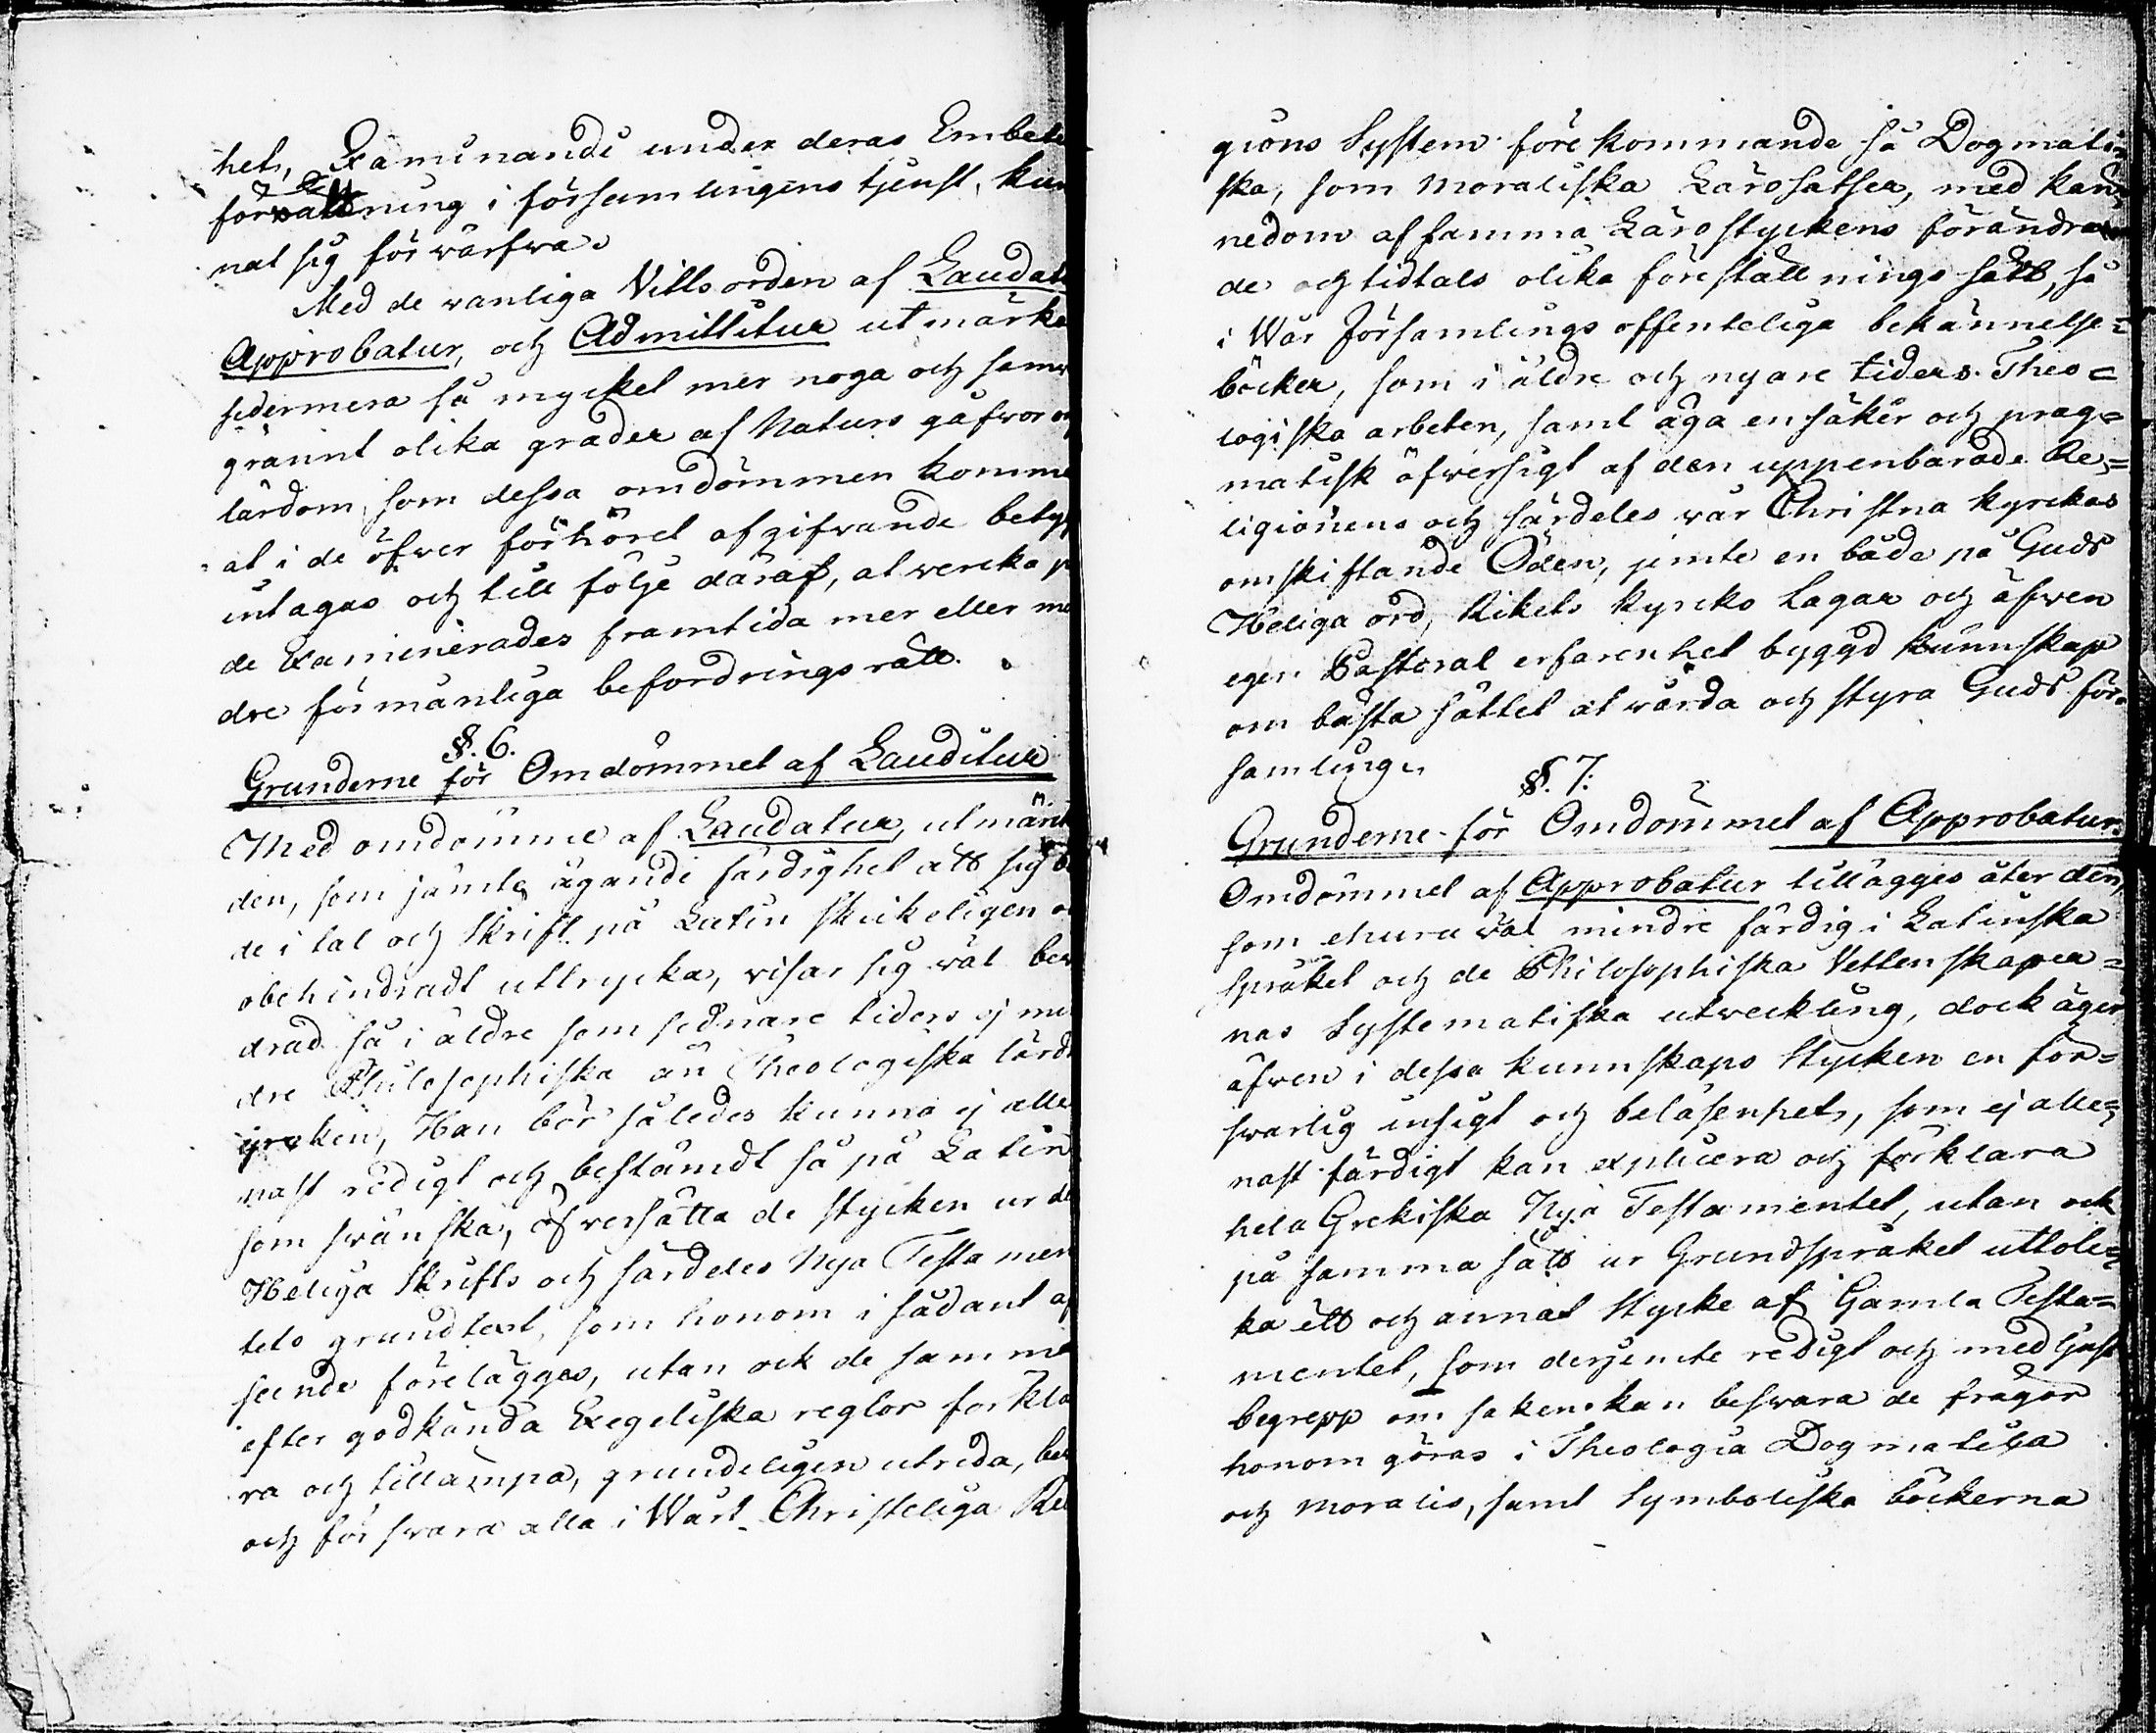 het, Examinandi under deras Embets
förvaltning i församlingens tjenst, kun
nat sig förvärfwa.
Med de vanliga Vitts orden af Laudat
Approbatur, och Admittitur utmärka
sedermera så myckel mer noga och
grännt olika grader af Naturs gåfwor
lärdom, som dessa omdömmen komma
at i de öfwer förhöret afgifvande
intagas och till följe däraf, at vercka
de Examinerades framtida mer eller
dre förmånliga befordrings rätt.
§. 6.
Grunderne för Omdömmet af Lauditur
Med omdömme af Laudatur, utmärk
den, som jämte ägande färdighet att sig
de i tal och Skrift på Latin skickeligen
obehindradt uttrycka, visar sig väl
drad så i äldre som sednare tiders ej
dre Philosophiska än Theologiska
yrcken, Han bör således kunna ej alle
nast redigt och bestämdt så på Latin
som swänska, öfversätta de stycken ur
Heliga Skrifts och särdeles Nya Testamen
tets grundtext, som honom i sådant
seende föreläggas, utan ock de samma
efter godkända Exegetiska reglor förkla
ra och tillämpa, grundeligen utreda,
och försvara alla i Wårt Christeliga Reli
gions System förekommande så Dogmati=
ska, som Moraliska Lärosatser, med kän=
nedom af samma Lärostyckens förändran
de och tidtals olika föreställnings sätt, så
i Wår Församlings offenteliga bekännelse=
böcker, som i äldre och nyare tiders Theo=
logiska arbeten, samt äga en säker och prag=
matisk öfversigt af den uppenbarade Re=
ligionens och särdeles vår Christna kyrckas
omskiftande Öden, jemte en både på Guds
Heliga ord, Rikets kyrcko Lagar och äfwen
egen Pastoral erfarenhet byggd kunnskap
om bästa sättet at vårda och styra Guds för=
samling.
§. 7.
Grunderne för Omdömmet af Approbatur.
Omdömmet af Approbatur tillägges åter den,
som ehuru väl mindre färdig i Latinska
Språket och de Philosophiska Vettenskaper=
nas Systematiska utveckling, dock äger
äfven i dessa kunnskaps Stycken en för=
svarlig insigt och beläsenhet, som ej alle=
nast färdigt kan explicera och förklara
hela Grekiska Nya Testamentet, utan ock
på samma sätt ur Grundspråket uttol=
ka ett och annat Stycke af Gamla Testa=
mentet, som derjemte redigt och med ljust
begrepp om saken kan besvara de frågor
honom göras i Theologia Dogmatica
och Moralis, samt Symboliska böckerna